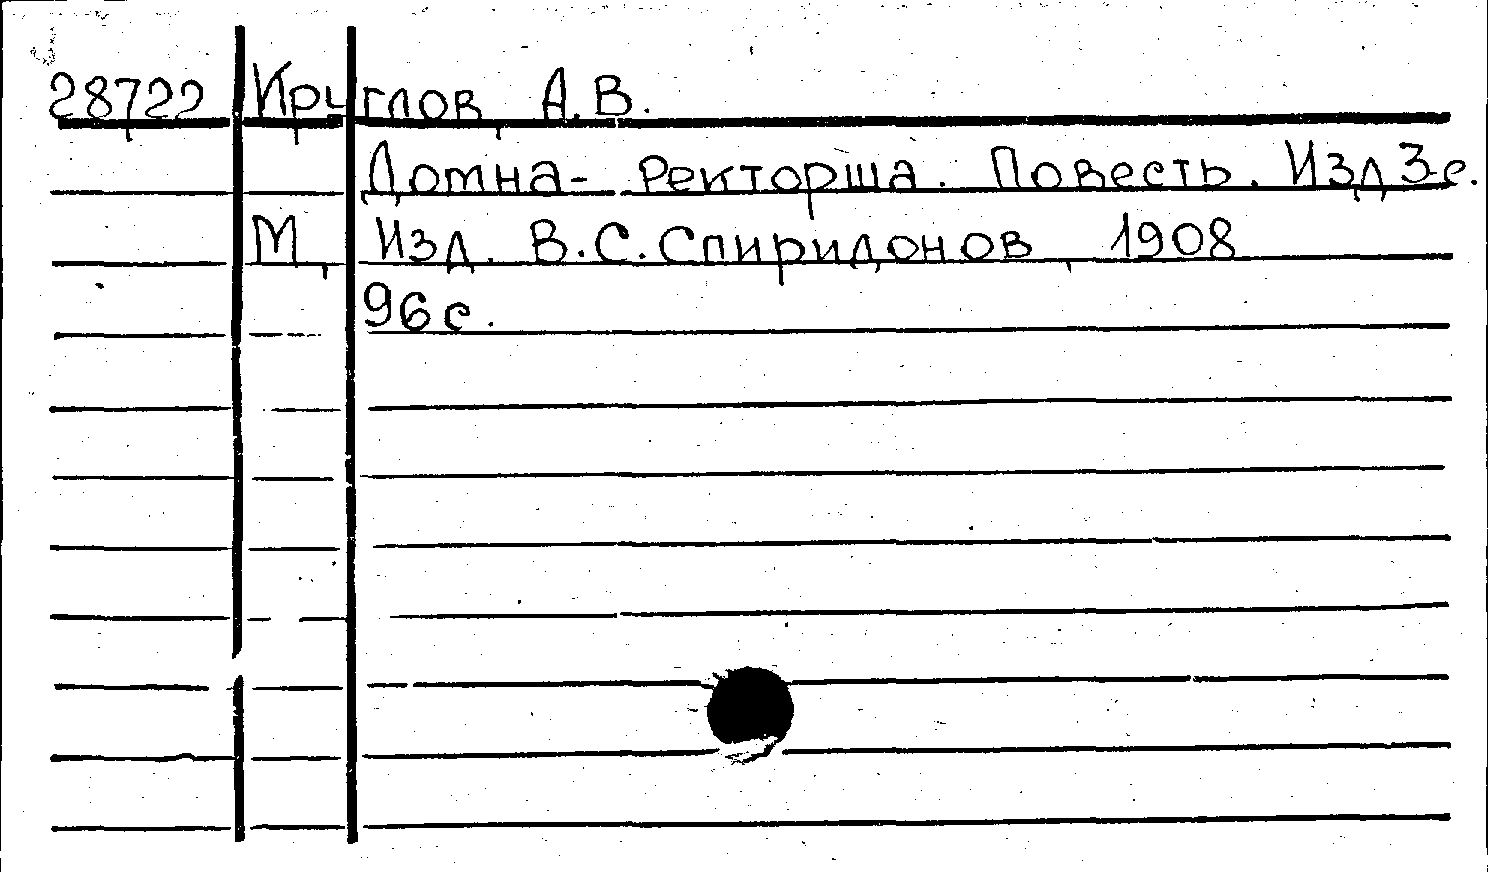 28722 Круглов, А.В.
Домна-ректорша. Повесть. Изд 3-е.
М, Изд. В.С.Спиридонов, 1908
96 с.